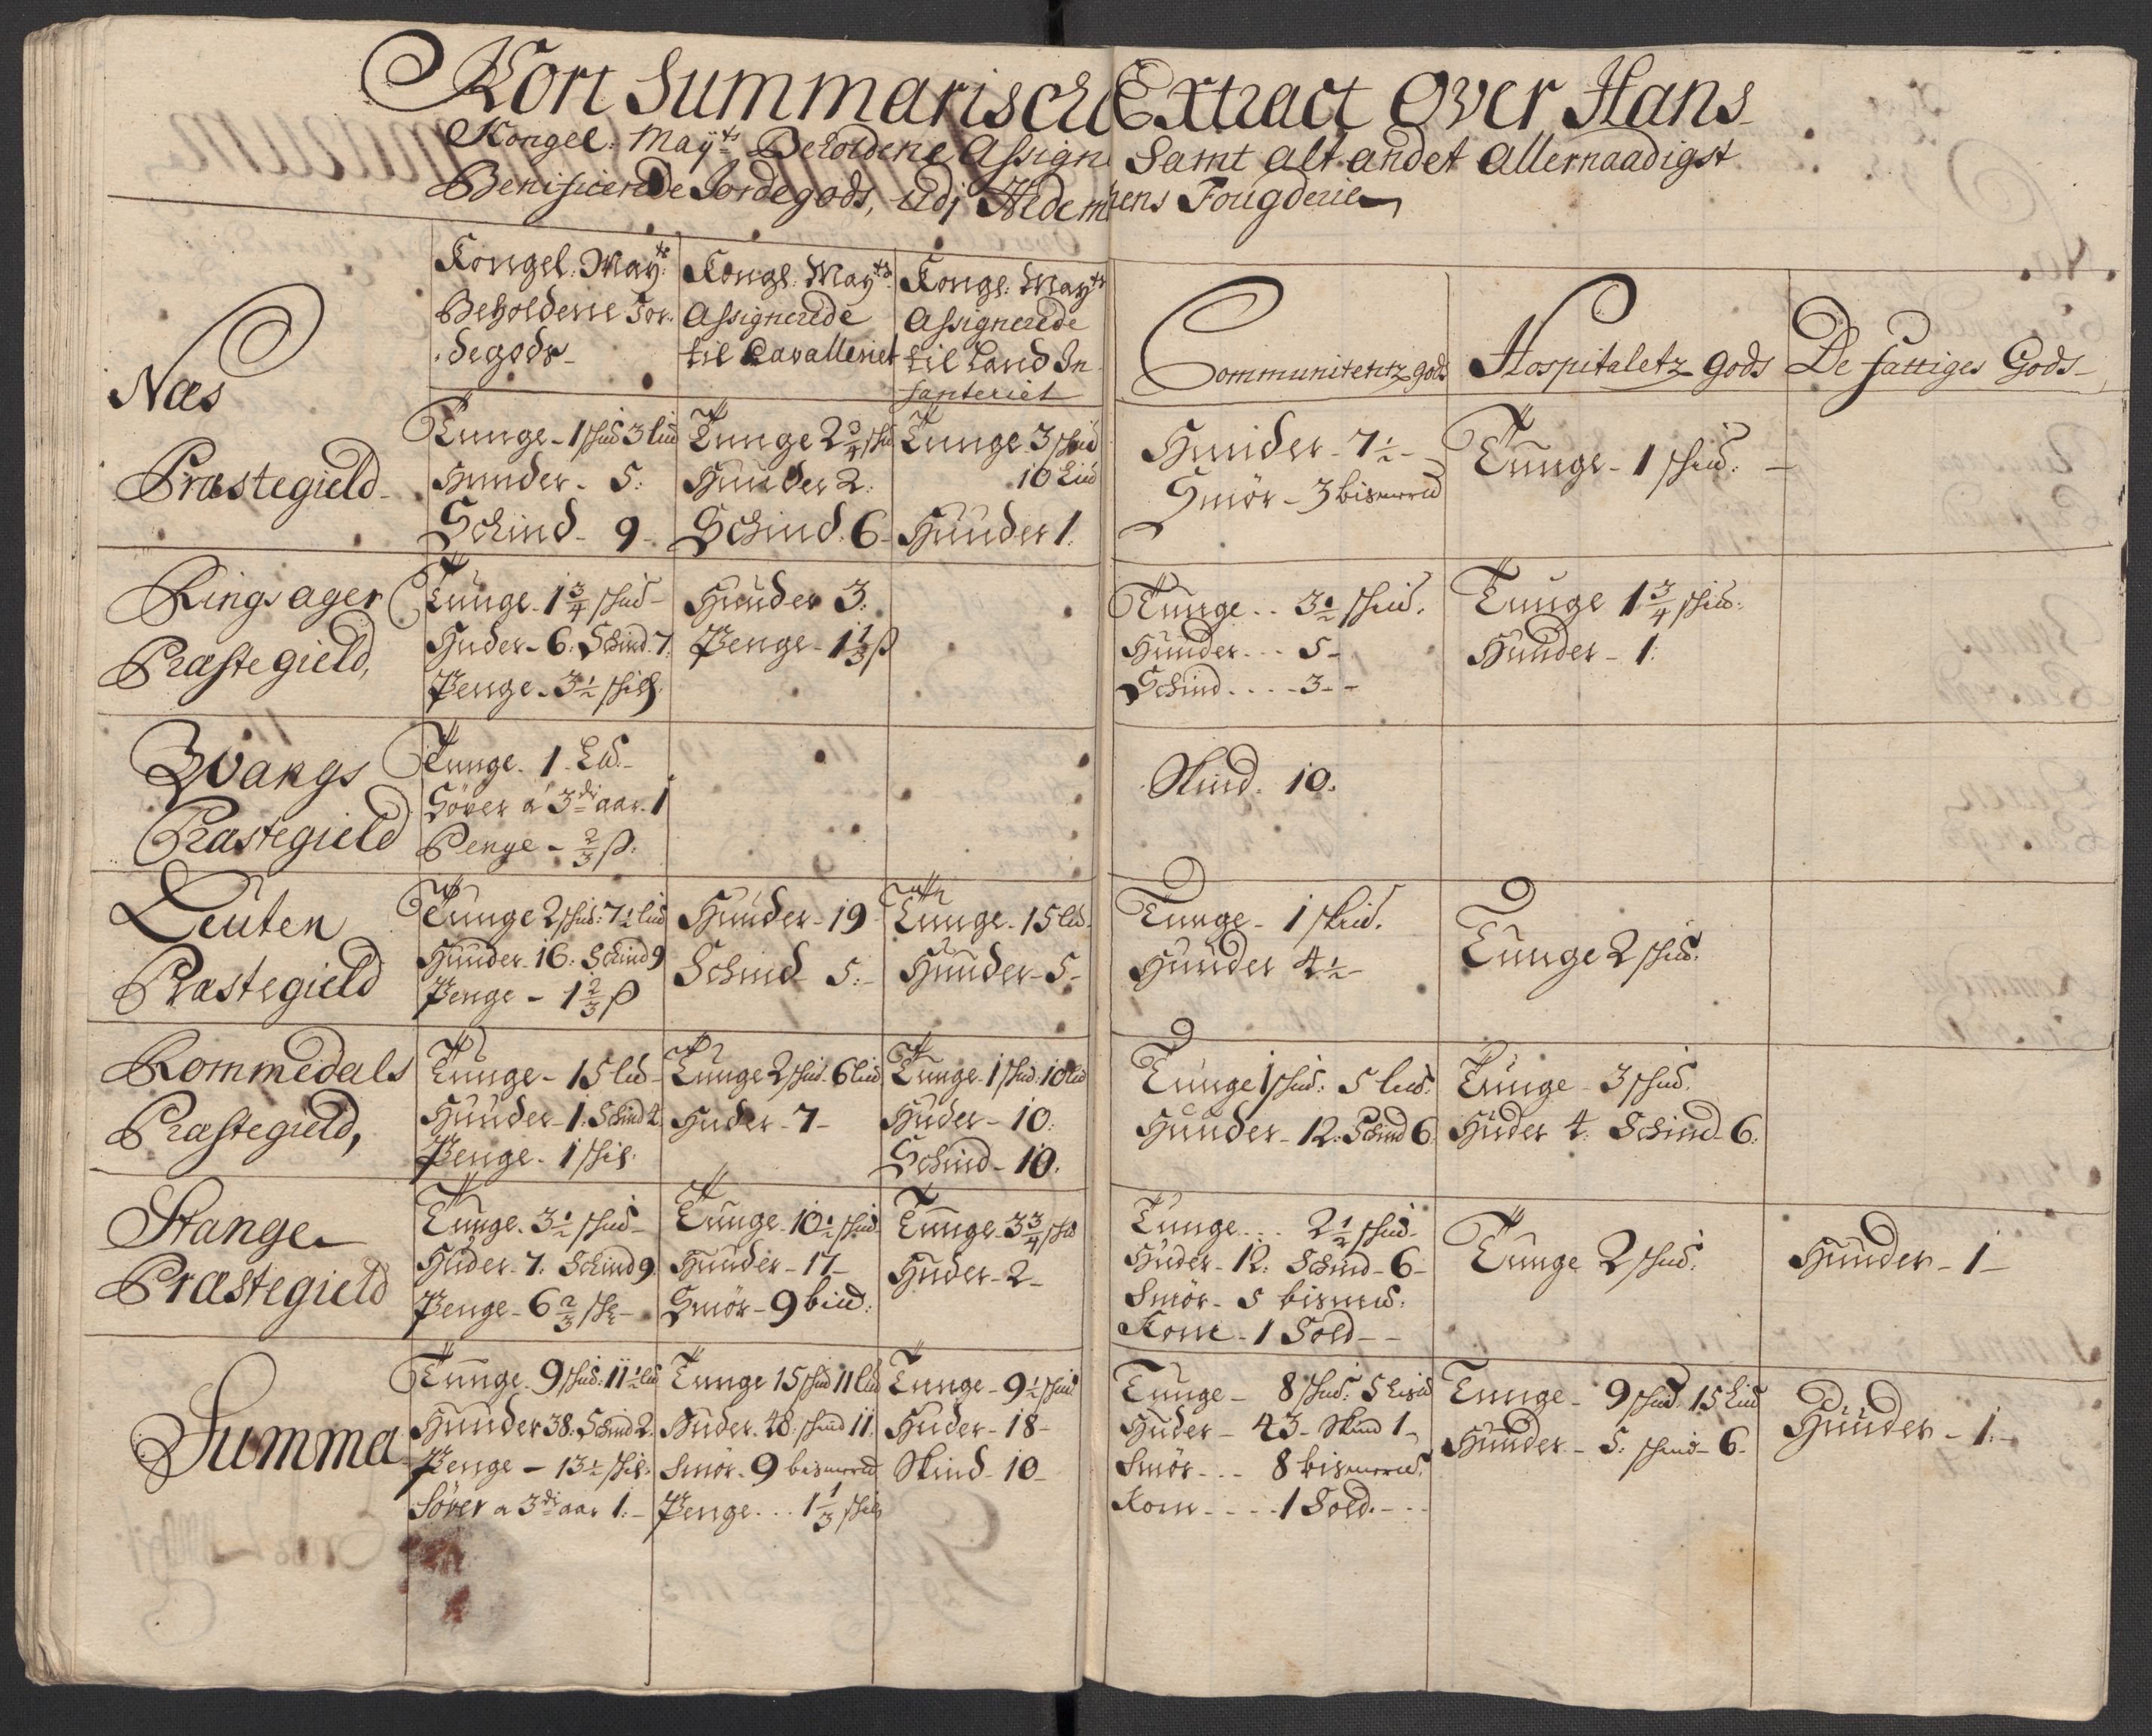 Kort Summarische Extract Over Hans
Kongel: May:ts Beholdene Assign Samt alt andet allernaadigst
Benificerede Jordegods, udj Hedemarkens Fougderie
Kongel: May:ts
Beholdene Jor-
degods
Kongl: May:ts
Assignerede
til Cavalleriet
Kongl: May:ts
Assignerede
til Land In
fanteriet
Communitetz gods
Hospitaletz gods
De fattiges Gods
Næs
Præstegield
Tunge - 1 skud 3 lius
Hunder - 5:
Schind - 9 -
Tunge 2 3/4 skud
Hunder 2:
Schind. 6 -
Tunge 3 skud
10 Lius
Huuder 1:
Huuder - 7 1/2 -
Smör - 3 bismerud
Tunge - 1 skud: -
Ringsager
Præstegield,
Tunge - 1 3/4 skud -
Huder - 6: Schind. 7.
Penge - 3 1/2 skil:
Huuder 3:
Penge - 1 1/3 ß
Tunge .. 3 1/2 skud.
Hunder ... 5 -
Schind .... 3 - -
Tunge 1 3/4 skud:
Huuder - 1:
Wangs
Præstegield
Tunge - 1 Lud: -
Söver a 3die aar. 1
Penge - 2/3 ß:
Skind. 10.
Leuten
Præstegield
Tunge 2 skud: 7 1/2 lud
Huuder 16: Schind 9
Penge - 1 2/3 ß
Huuder - 19
Schind 5: -
Tunge - 15 lud.
Huuder - 5 -
Tunge - 1 skud.
Huuder 4 1/2 -
Tunge 2 skud.
Rommedals
Præstegield,
Tunge - 15 lud -
Huuder - 1: Schind 2
Penge - 1 skil:
Tunge 2 skud 6 lud
Huder - 7 -
Tunge 1 skud: 10 lud
Huder - 10:
Schind - 10.
Tunge 1 skud: 5 lud:
Huuder - 12: Schind 6
Tunge - 3 skud.
Huder 4: Schind - 6:
Stange
Præstegield
Tunge. 3 1/2 skud -
Huder - 7: Schind 9.
Penge - 6 2/3 sk -
Tunge - 10 1/2 skud
Huuder - 17 -
Smör - 9 biud:
Tunge 3 3/4 skud
Huder - 2 -
Tunge ... 2 1/2 skud -
Huder - 12: Schind - 6 -
Smör - 5 bismud:
Korn - 1 Sold - -
Tunge 2 skud:
Huuder - 1 -
Summa
Tunge. 9 skud: 11 1/2 lud
Huuder 38: Schind 2.
Penge - 13 1/2 skil:
Söver a 3die aar 1: -
Tunge 15 skud 11 lud
Huder. 48: skind 11:
Smör - 9 bismerud
Penge ... 1 1/3 skil
Tunge - 9 1/2 skud
Huder - 18 -
Skind - 10 -
Tunge - 8 skud: 5 Lisud
Huder - 43 - Skind 1 -
Smör - .. 8 bismerud:
Korn .... 1 Sold. - - -
Tunge - 9 skud 15 Lud
Huuder - 5: skind - 6 -
Huuder - 1: -